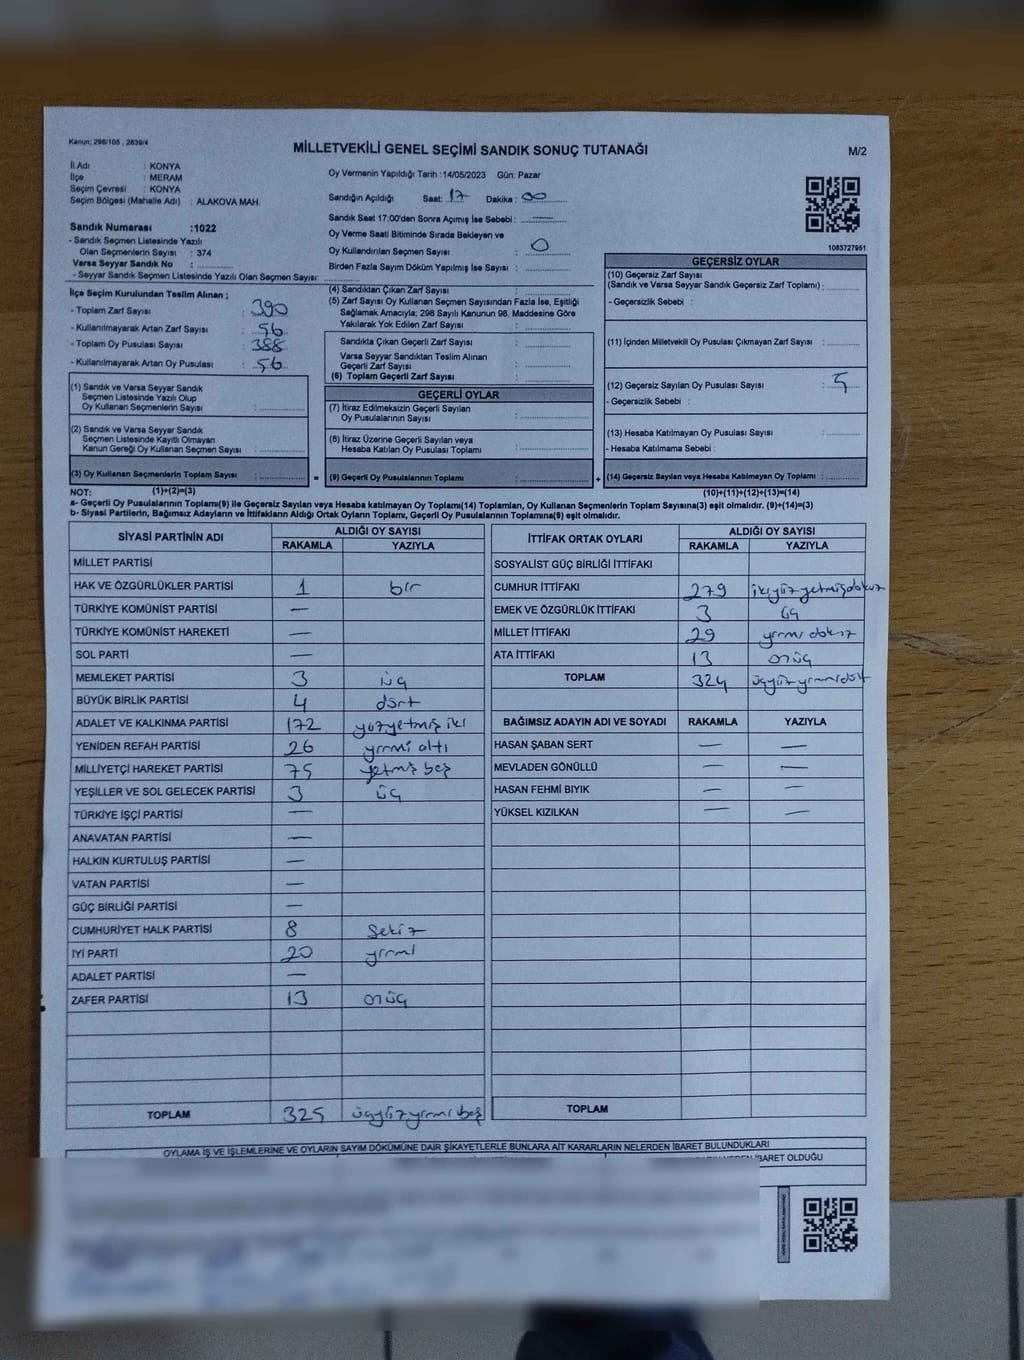 Kanun: 298/105 , 2839/4
MİLLETVEKİLİ GENEL SEÇİMİ SANDIK SONUÇ TUTANAĞI
M/2
İl Adı : KONYA
İlçe : MERAM
Seçim Çevresi : KONYA
Seçim Bölgesi (Mahalle Adı) : ALAKOVA MAH.
Sandık Numarası :1022
- Sandık Seçmen Listesinde Yazılı
Olan Seçmenlerin Sayısı : 374
Varsa Seyyar Sandık No :
- Seyyar Sandık Seçmen Listesinde Yazılı Olan Seçmen Sayısı:
Oy Vermenin Yapıldığı Tarih :14/05/2023 Gün: Pazar
Sandığın Açıldığı Saat: 17 Dakika: 00
Sandık Saat 17:00'den Sonra Açımış İse Sebebi : —
Oy Verme Saati Bitiminde Sırada Bekleyen ve
Oy Kullandırılan Seçmen Sayısı : 0
Birden Fazla Sayım Döküm Yapılmış İse Sayısı :
1083727951
İlçe Seçim Kurulundan Teslim Alınan ;
- Toplam Zarf Sayısı : 390
- Kullanılmayarak Artan Zarf Sayısı : 56
- Toplam Oy Pusulası Sayısı : 388
- Kullanılmayarak Artan Oy Pusulası : 56
(1) Sandık ve Varsa Seyyar Sandık
Seçmen Listesinde Yazılı Olup
Oy Kullanan Seçmenlerin Sayısı :
(2) Sandık ve Varsa Seyyar Sandık
Seçmen Listesinde Kayıtlı Olmayan
Kanun Gereği Oy Kullanan Seçmen Sayısı :
(3) Oy Kullanan Seçmenlerin Toplam Sayısı :
(1)+(2)=(3)
(4) Sandıktan Çıkan Zarf Sayısı :
(5) Zarf Sayısı Oy Kullanan Seçmen Sayısından Fazla İse, Eşitliği
Sağlamak Amacıyla; 298 Sayılı Kanunun 98. Maddesine Göre
Yakılarak Yok Edilen Zarf Sayısı :
Sandıkta Çıkan Geçerli Zarf Sayısı :
Varsa Seyyar Sandıktan Teslim Alınan
Geçerli Zarf Sayısı :
(6) Toplam Geçerli Zarf Sayısı :
GEÇERLİ OYLAR
(7) İtiraz Edilmeksizin Geçerli Sayılan
Oy Pusulalarının Sayısı :
(8) İtiraz Üzerine Geçerli Sayılan veya
Hesaba Katılan Oy Pusulası Toplamı :
= (9) Geçerli Oy Pusulalarının Toplamı :
GEÇERSİZ OYLAR
(10) Geçersiz Zarf Sayısı
(Sandık ve Varsa Seyyar Sandık Geçersiz Zarf Toplamı) :
- Geçersizlik Sebebi :
(11) İçinden Milletvekili Oy Pusulası Çıkmayan Zarf Sayısı :
(12) Geçersiz Sayılan Oy Pusulası Sayısı : 5
- Geçersizlik Sebebi :
(13) Hesaba Katılmayan Oy Pusulası Sayısı :
- Hesaba Katılmama Sebebi :
+ (14) Geçersiz Sayılan veya Hesaba Katılmayan Oy Toplamı :
(10)+(11)+(12)+(13)=(14)
NOT:
a- Geçerli Oy Pusulalarının Toplamı(9) ile Geçersiz Sayılan veya Hesaba katılmayan Oy Toplamı(14) Toplamları, Oy Kullanan Seçmenlerin Toplam Sayısına(3) eşit olmalıdır. (9)+(14)=(3)
b- Siyasi Partilerin, Bağımsız Adayların ve İttifakların Aldığı Ortak Oyların Toplamı, Geçerli Oy Pusulalarının Toplamına(9) eşit olmalıdır.
SİYASİ PARTİNİN ADI ALDIĞI OY SAYISI
RAKAMLA YAZIYLA
MİLLET PARTİSİ
HAK VE ÖZGÜRLÜKLER PARTİSİ 1 bir
TÜRKİYE KOMÜNİST PARTİSİ —
TÜRKİYE KOMÜNİST HAREKETİ —
SOL PARTİ —
MEMLEKET PARTİSİ 3 üç
BÜYÜK BİRLİK PARTİSİ 4 dört
ADALET VE KALKINMA PARTİSİ 172 yüzyetmiş iki
YENİDEN REFAH PARTİSİ 26 yirmi altı
MİLLİYETÇİ HAREKET PARTİSİ 75 yetmiş beş
YEŞİLLER VE SOL GELECEK PARTİSİ 3 üç
TÜRKİYE İŞÇİ PARTİSİ —
ANAVATAN PARTİSİ —
HALKIN KURTULUŞ PARTİSİ —
VATAN PARTİSİ —
GÜÇ BİRLİĞİ PARTİSİ —
CUMHURİYET HALK PARTİSİ 8 Sekiz
İYİ PARTİ 20 yirmi
ADALET PARTİSİ —
ZAFER PARTİSİ 13 onüç
TOPLAM 325 üçyüzyirmi beş
İTTİFAK ORTAK OYLARI ALDIĞI OY SAYISI
RAKAMLA YAZIYLA
SOSYALİST GÜÇ BİRLİĞİ İTTİFAKI
CUMHUR İTTİFAKI 279 ikiyüz yetmişdokuz
EMEK VE ÖZGÜRLÜK İTTİFAKI 3 üç
MİLLET İTTİFAKI 29 yirmi dokuz
ATA İTTİFAKI 13 onüç
TOPLAM 324 üçyüz yirmi dört
BAĞIMSIZ ADAYIN ADI VE SOYADI RAKAMLA YAZIYLA
HASAN ŞABAN SERT — —
MEVLADEN GÖNÜLLÜ — —
HASAN FEHMİ BIYIK — —
YÜKSEL KIZILKAN — —
TOPLAM
OYLAMA İŞ VE İŞLEMLERİNE VE OYLARIN SAYIM DÖKÜMÜNE DAİR ŞİKAYETLERLE BUNLARA AİT KARARLARIN NELERDEN İBARET BULUNDUKLARI
İBARET OLDUĞU